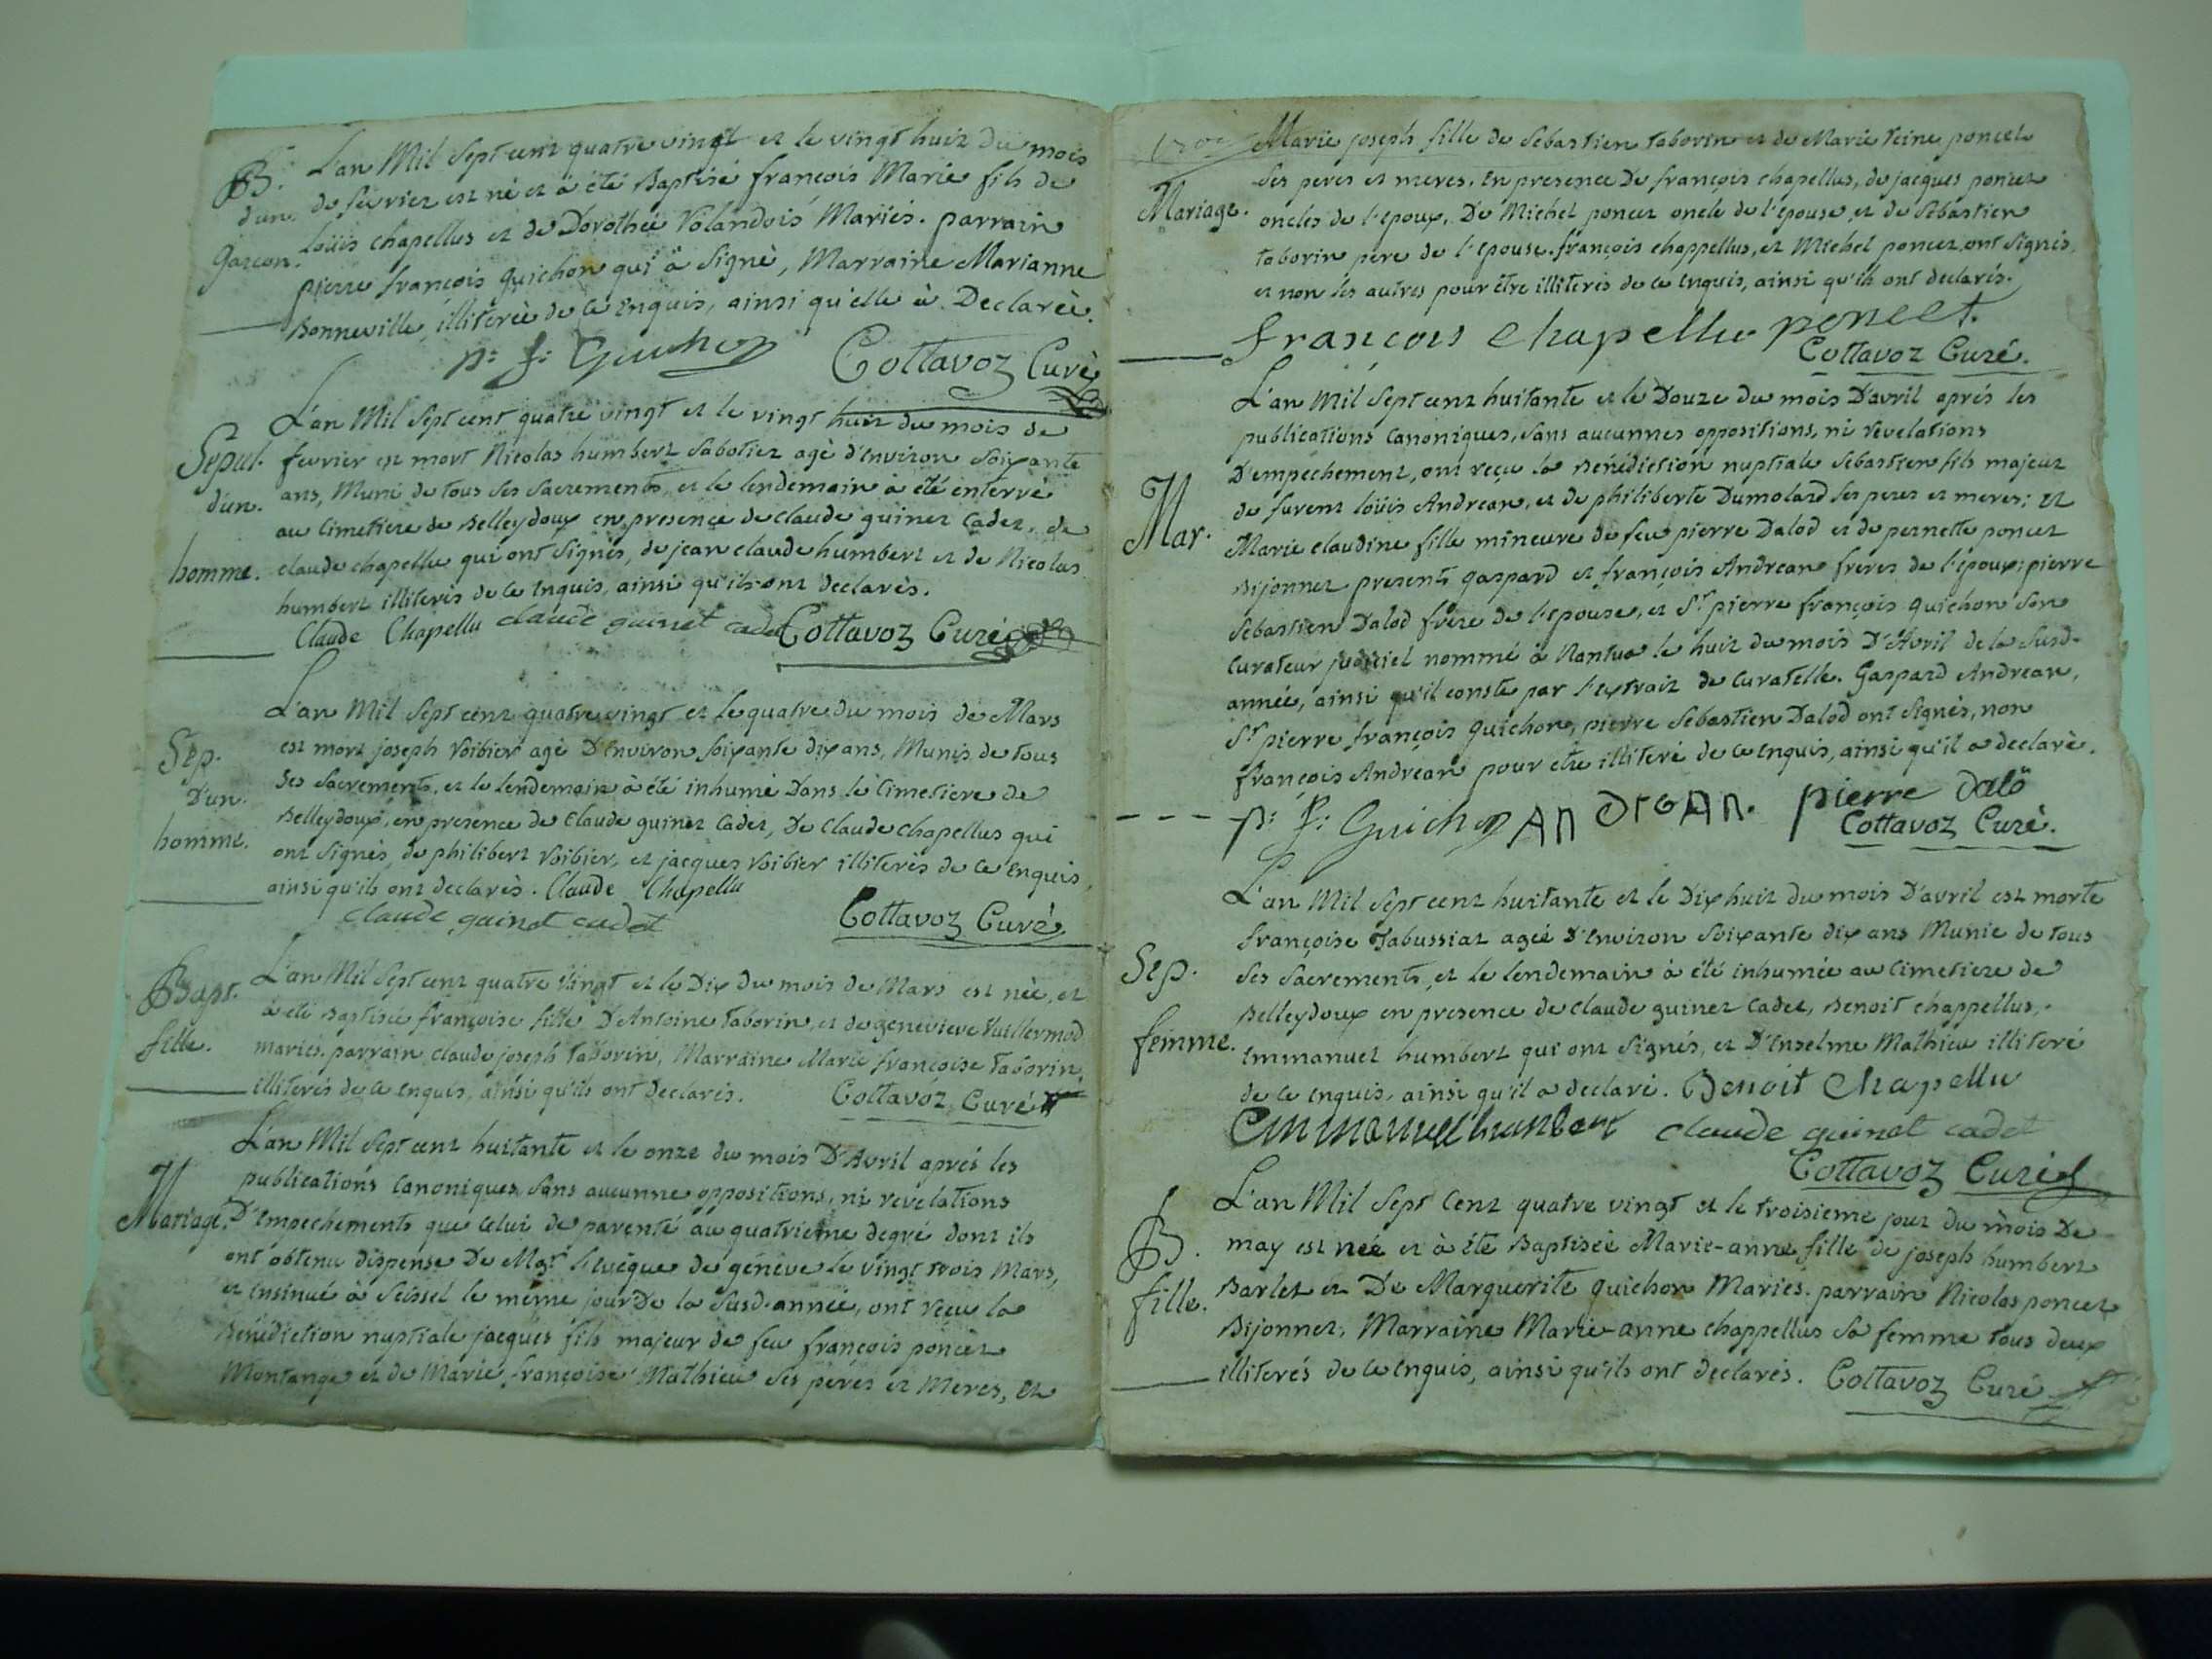 B. L'an Mil Sept cent quatre vingt et le vingt huit du mois
d'un de fevrier est né et à été Baptisé françois Marie fils de
Garçon. Loüis chapellus et de Dorothée Volandois Mariés. parrain
pierre françois Guichon qui à Signé, Marraine Marianne
Bonneville, illiterée de ce Enquis, ainsi qu'elle à Declarée.
p: f: Guichon Cottavoz Curé
L'an Mil Sept cent quatre vingt et le vingt huit du mois de
Sepul. fevrier est mort Nicolas humbert Sabotier agé d'Environ Soixante
d'un. ans, Muni de tous ses Sacrements, et le lendemain a été enterré
au Cimetiere de Belleydoux en presence de Claude guinet Cadet, de
homme. claude chapellu qui ont Signés, de jean claude humbert et de Nicolas
humbert illiterés de ce Enquis, ainsi qu'ils ont declarés.
Claude Chapellu claude guinet cadet Cottavoz Curé
L'an Mil Sept cent quatre vingt et le quatre du mois de Mars
Sep. est mort joseph Voibier agé D'Environ Soixante dix ans, Munis de tous
D'un. Ses Sacrements, et le lendemain à été inhumé Dans le Cimetiere de
Belleydoux, en presence de Claude guinet Cadet, De Claude chapellus qui
homme. ont Signés, de philibert Voibier, et jacques Voibier illiterés de ce Enquis,
ainsi qu'ils ont declarés. Claude Chapellu
claude guinet cadet Cottavoz Curé
Bapt. L'an Mil Sept cent quatre Vingt et le Dix du mois de Mars est née, et
à été Baptisée françoise fille D'Antoine Taborin, et de genevieve Vuillermod
fille. mariés. parrain claude joseph Taborin, Marraine Marie françoise Taborin,
illiterés de ce enquis, ainsi qu'ils ont declarés. Cottavoz Curé
L'an Mil Sept cent huitante et le onze du mois D'Avril aprés les
publications Canoniques, Sans aucunne oppositions, ni revelations
Mariage. D'Empechements que celui de parenté au quatrieme degré dont ils
ont obtenu dispense De Mgr l'evêque de géneve le Vingt trois Mars,
et insinué à Seissel le même jour De la Susd. année, ont reçu la
Bénédiction nuptiale jacques fils majeur de feu françois poncet
Montange et de Marie françoise Mathieu Ses peres et Meres, Et
Marie joseph fille de Sebastien Taborin et de Marie Teine poncet
Ses peres et meres. En presence De françois chapellus, de jacques poncet
Mariage. oncles de l'epoux, De Michel poncet oncle de l'epouse et de Sebastien
taborin pere de l'epouse. françois chappellus, et Michel poncet ont Signés
et non les autres pour être illiterés de ce Enquis, ainsi qu'ils ont declarés.
françois Chapellu poncet.
Cottavoz Curé.
L'an Mil Sept cent huitante et le Douze du mois D'avril aprés les
publications Canoniques, Sans aucunnes oppositions, ni revelations
D'empechement, ont reçu la Bénédiction nuptiale Sebastien fils majeur
Mar. de furent loüis Andrean, et de philiberte Dumolard Ses peres et meres; Et
Marie claudine fille mineure de feu pierre Dalod et de pernette poncet
Bijonnet presents gaspard et françois Andrean freres de l'époux; pierre
Sebastien Dalod frere de l'epouse, et Sr pierre françois Guichon Son
Curateur judiciel nommé à Nantua le huit du mois D'Avril de la Susd.
année, ainsi qu'il conste par l'extrait de Curatelle. Gaspard Andrean,
Sr pierre françois Guichon, pierre Sebastien Dalod ont Signés, non
françois Andrean pour etre illiteré de ce enquis, ainsi qu'il a declaré.
p: f: Guichon AnDreAn. pierre dalö
Cottavoz Curé.
L'an Mil Sept cent huitante et le Dix huit du mois D'avril est morte
Françoise Tabussiat agée D'Environ Soixante dix ans Munie de tous
Sep. Ses Sacrements, et le lendemain à été inhumée au Cimetiere de
Belleydoux en presence de Claude guinet Cadet, Benoit chappellus,
femme. Emmanuel humbert qui ont Signés, et D'Enselme Mathieu illiteré
de ce enquis, ainsi qu'il a declaré. Benoit Chapellu
Emmanuel humbert claude guinet cadet
Cottavoz Curé
L'an Mil Sept Cent quatre vingt et le troisieme jour du mois De
B. may est née et à été Baptisée Marie-anne fille de joseph humbert
fille. Barlet et De Marguerite Guichon Mariés. parrain Nicolas poncet
Bijonnet, Marraine Marie-anne chappellus Sa femme tous deux
illiterés de ce enquis, ainsi qu'ils ont declarés. Cottavoz Curé